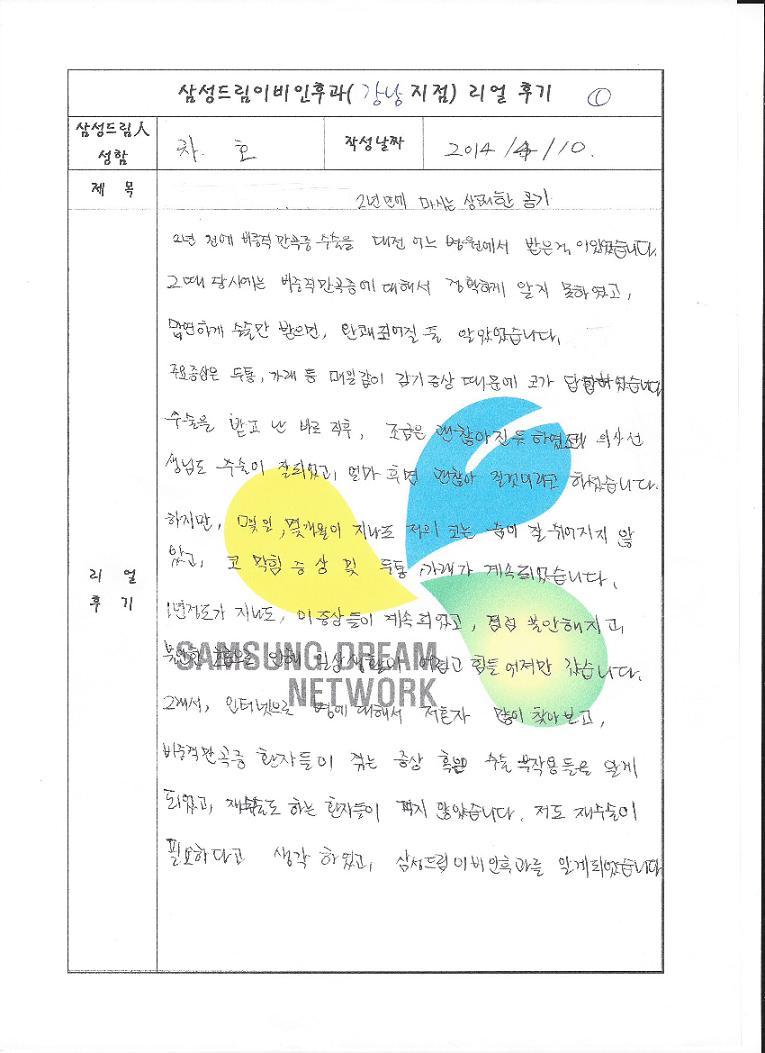 삼성드림이비인후과(강남지점) 리얼 후기 ①
삼성드림人
성함
차. 호
작성날짜
2014/4/10.
제 목
2년만에 마시는 상쾌한 공기
2년 전에 비중격만곡증 수술을 대전 어느 병원에서 받은적이있었습니다.
그때 당시에는 비중격만곡증에 대해서 정확하게 알지 못하였고,
막연하게 수술만 받으면, 안쾌되어질 듯 알았었습니다.
주요증상은 두통, 가래 등 매일같이 감기증상 때문에 코가 답답하였습니다
수술을 받고 난 바로 직후, 조금은 괜찮아진듯 하였고 의사선
생님도 수술이 잘되었고, 얼마 후면 괜찮아 질것이라고 하셨습니다.
하지만, 몇일, 몇개월이 지나도 저의 코는 숨이 잘 쉬어지지 않
았고, 코 막힘 증상 및 두통, 가래가 계속되었습니다.
1년정도가 지나도, 이증상들이 계속되었고, 점점 불안해지고,
인해 일상생활이 어렵고 힘들어져만 갔습니다.
그래서, 인터넷으로 병에 대해서 저혼자 많이 찾아보고,
비중격만곡증 환자들이 겪는 증상 혹은 수술 부작용들을 알게
되었고, 재수술도 하는 환자들이 적지 않았습니다. 저도 재수술이
필요하다고 생각 하였고, 삼성드림이비인후과를 알게되었습니다
리 얼
후 기
SAMSUNG DREAM
NETWORK